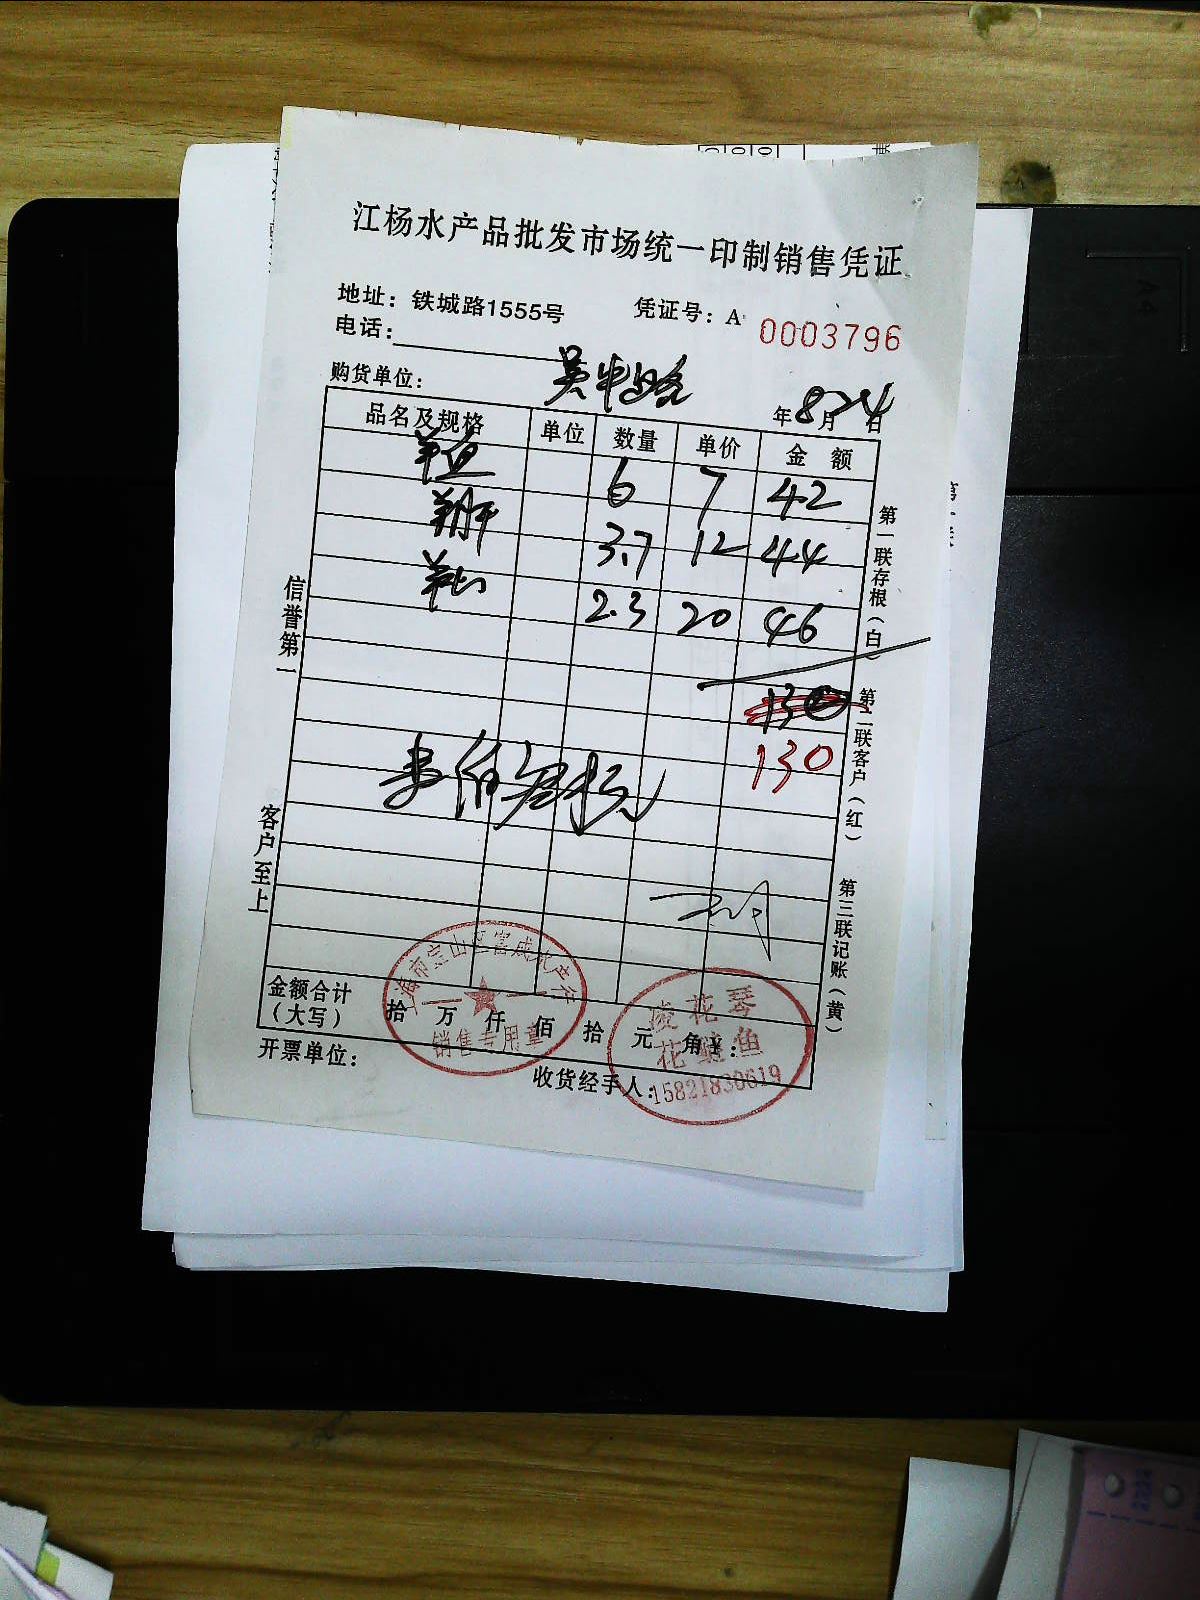 江杨水产品批发市场统一印制销售凭证
地址：铁城路1555号 凭证号：A 0003796
电话：
购货单位： 吴中路 年8月24日
品名及规格 单位 数量 单价 金额
6 7 42
3.7 12 44
2.3 20 46
130
130
金额合计（大写） 拾 万 仟 佰 拾 元 角 ¥：
开票单位： 收货经手人：
信誉第一
客户至上
第一联存根（白）
第二联客户（红）
第三联记账（黄）
销售专用章
凌花琴
花鲢鱼
15821830619